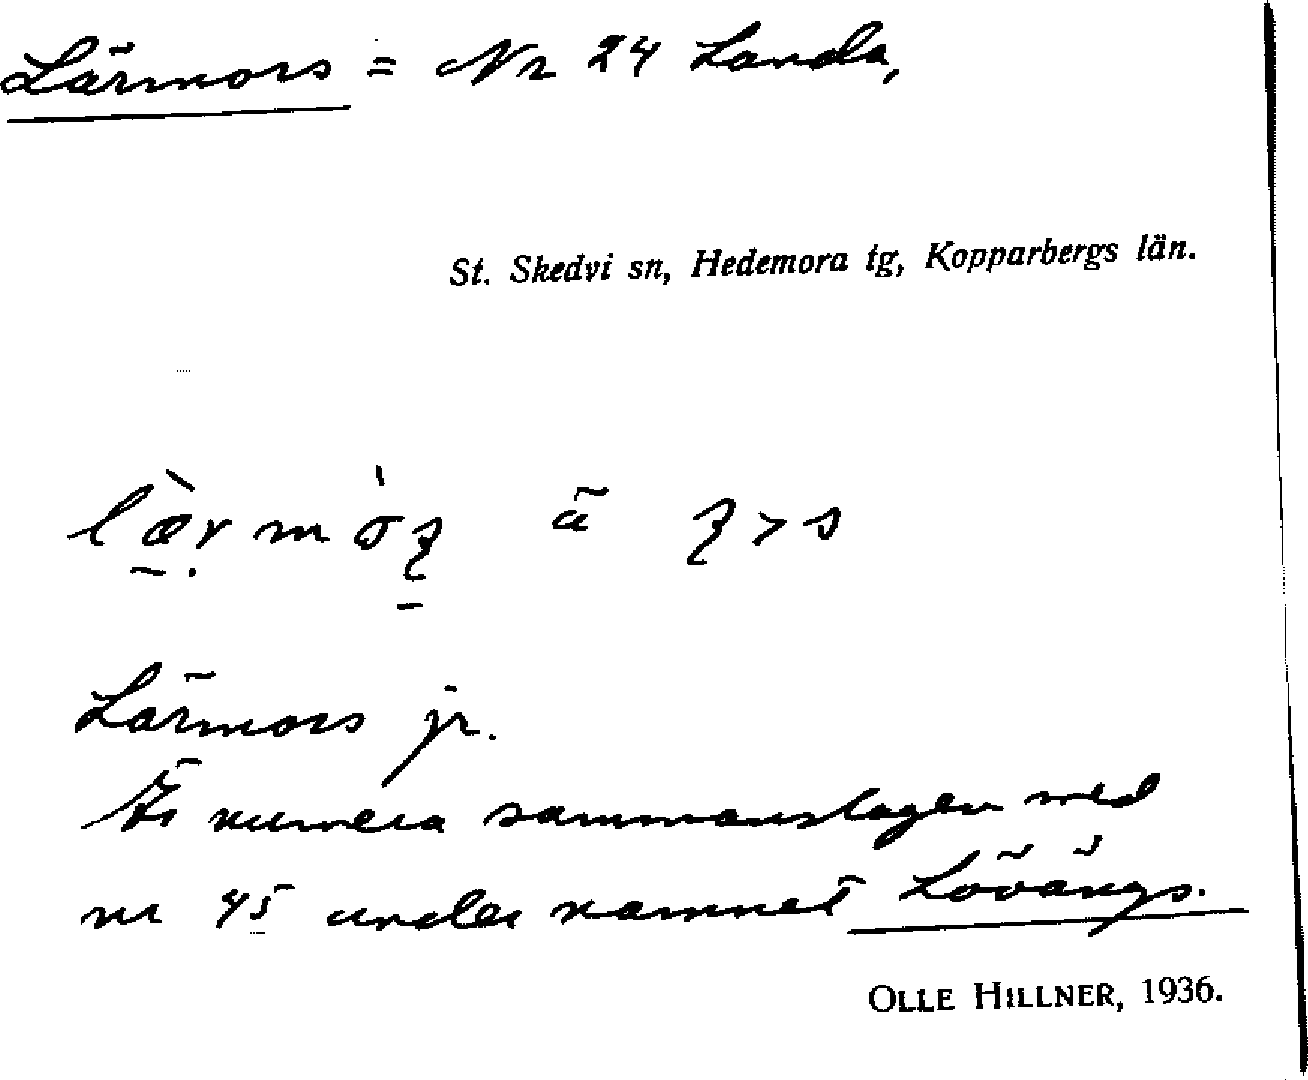 Lärmors = Nr 24 Landa,
St. Skedvi sn, Hedemora tg, Kopparbergs län.
Lärmors jr.
Är numera sammanslagen med
nr 45 under namnet Lövängs.
OLLE HILLNER, 1936.